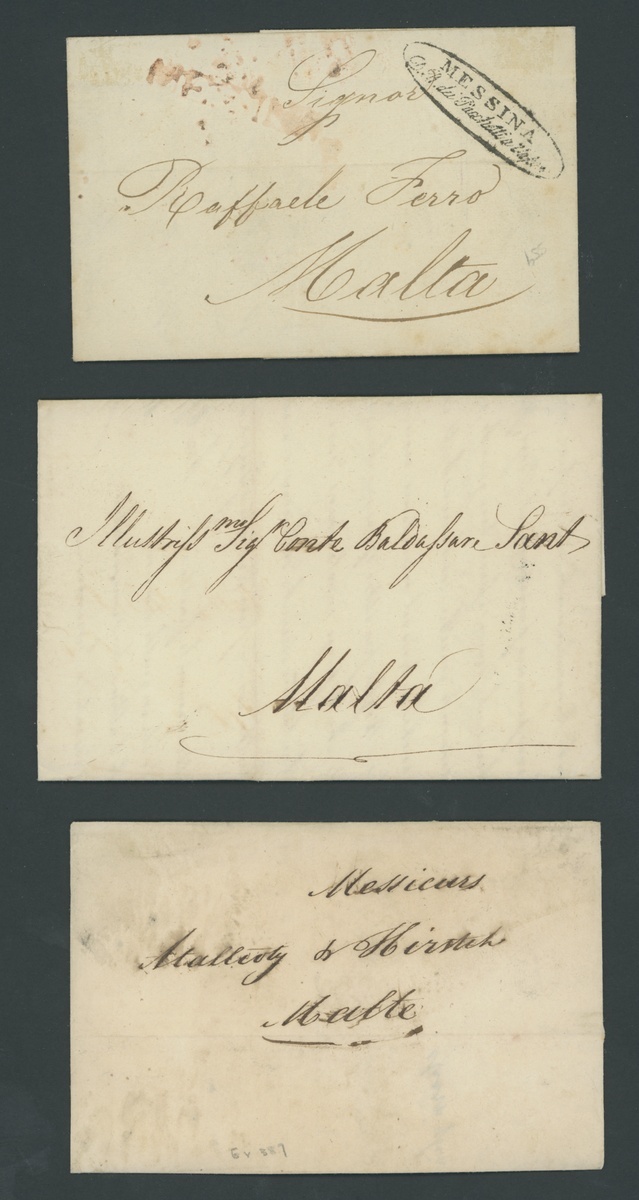 MESSINA
Signor
Raffaele Ferro
Malta
Illustriss.mo Sigr Conte Baldassare Sant
Malta
Messieurs
& Hirsch
Malte